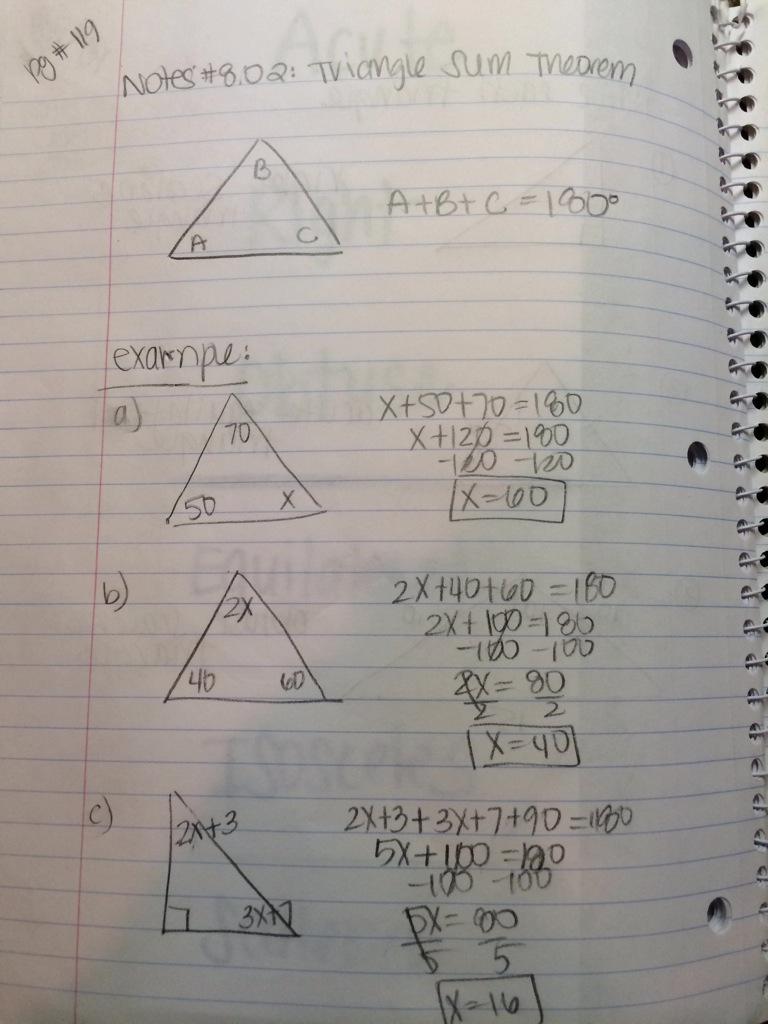 pg # 119
Notes #8.02: Triangle Sum Theorem
B
A C
A+B+C = 180°
example:
a)
70
50 x
x+50+70 = 180
x+120 = 180
-120 -120
x=60
b)
2x
40 60
2x+40+60 = 180
2x+100 = 180
-100 -100
2x = 80
2 2
x=40
c)
2x+3
3x+7
2x+3+3x+7+90 = 180
5x+100 = 180
-100 -100
5x = 80
5 5
x=16